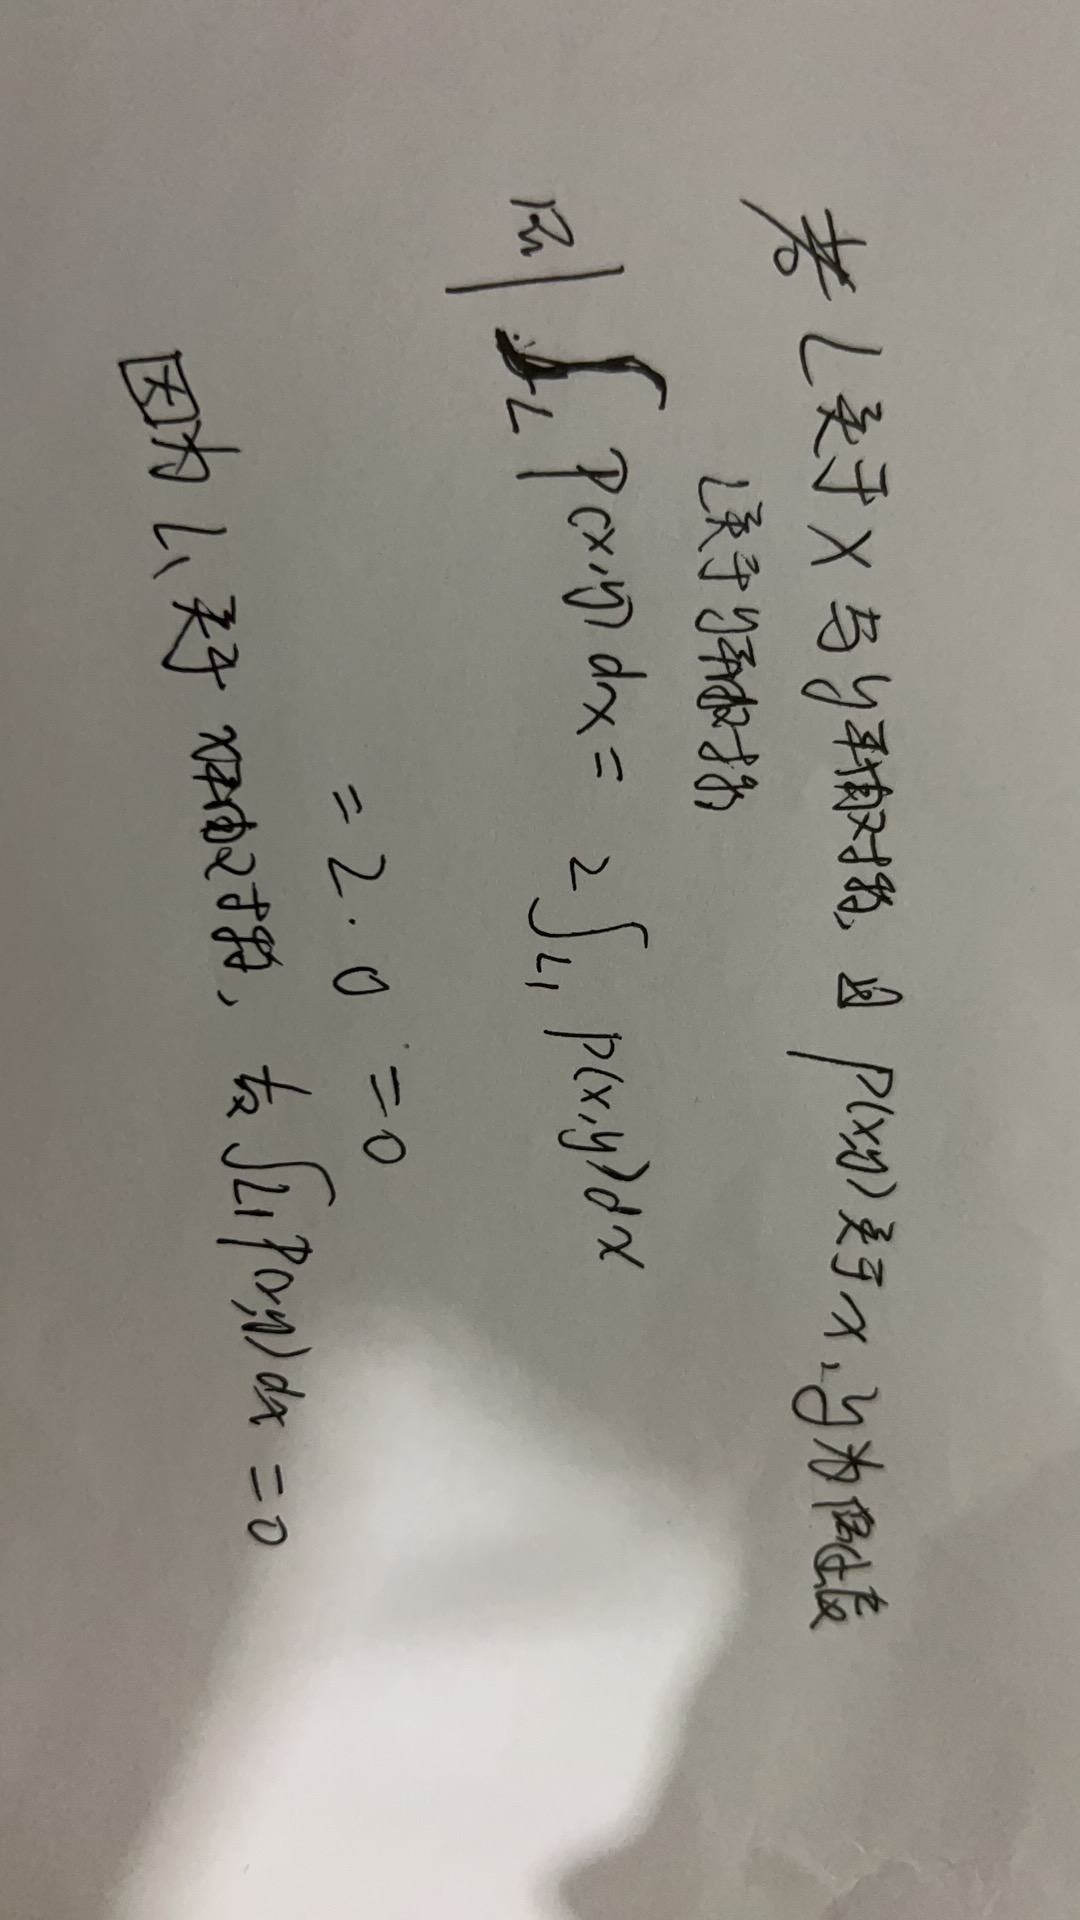 若L关于x与y轴对称，且P(x,y)关于x,y为偶函数
L关于y轴对称
则∫_L P(x,y)dx = 2∫_{L1} P(x,y)dx
= 2·0 = 0
因为L1关于x轴对称，故∫_{L1} P(x,y)dx = 0